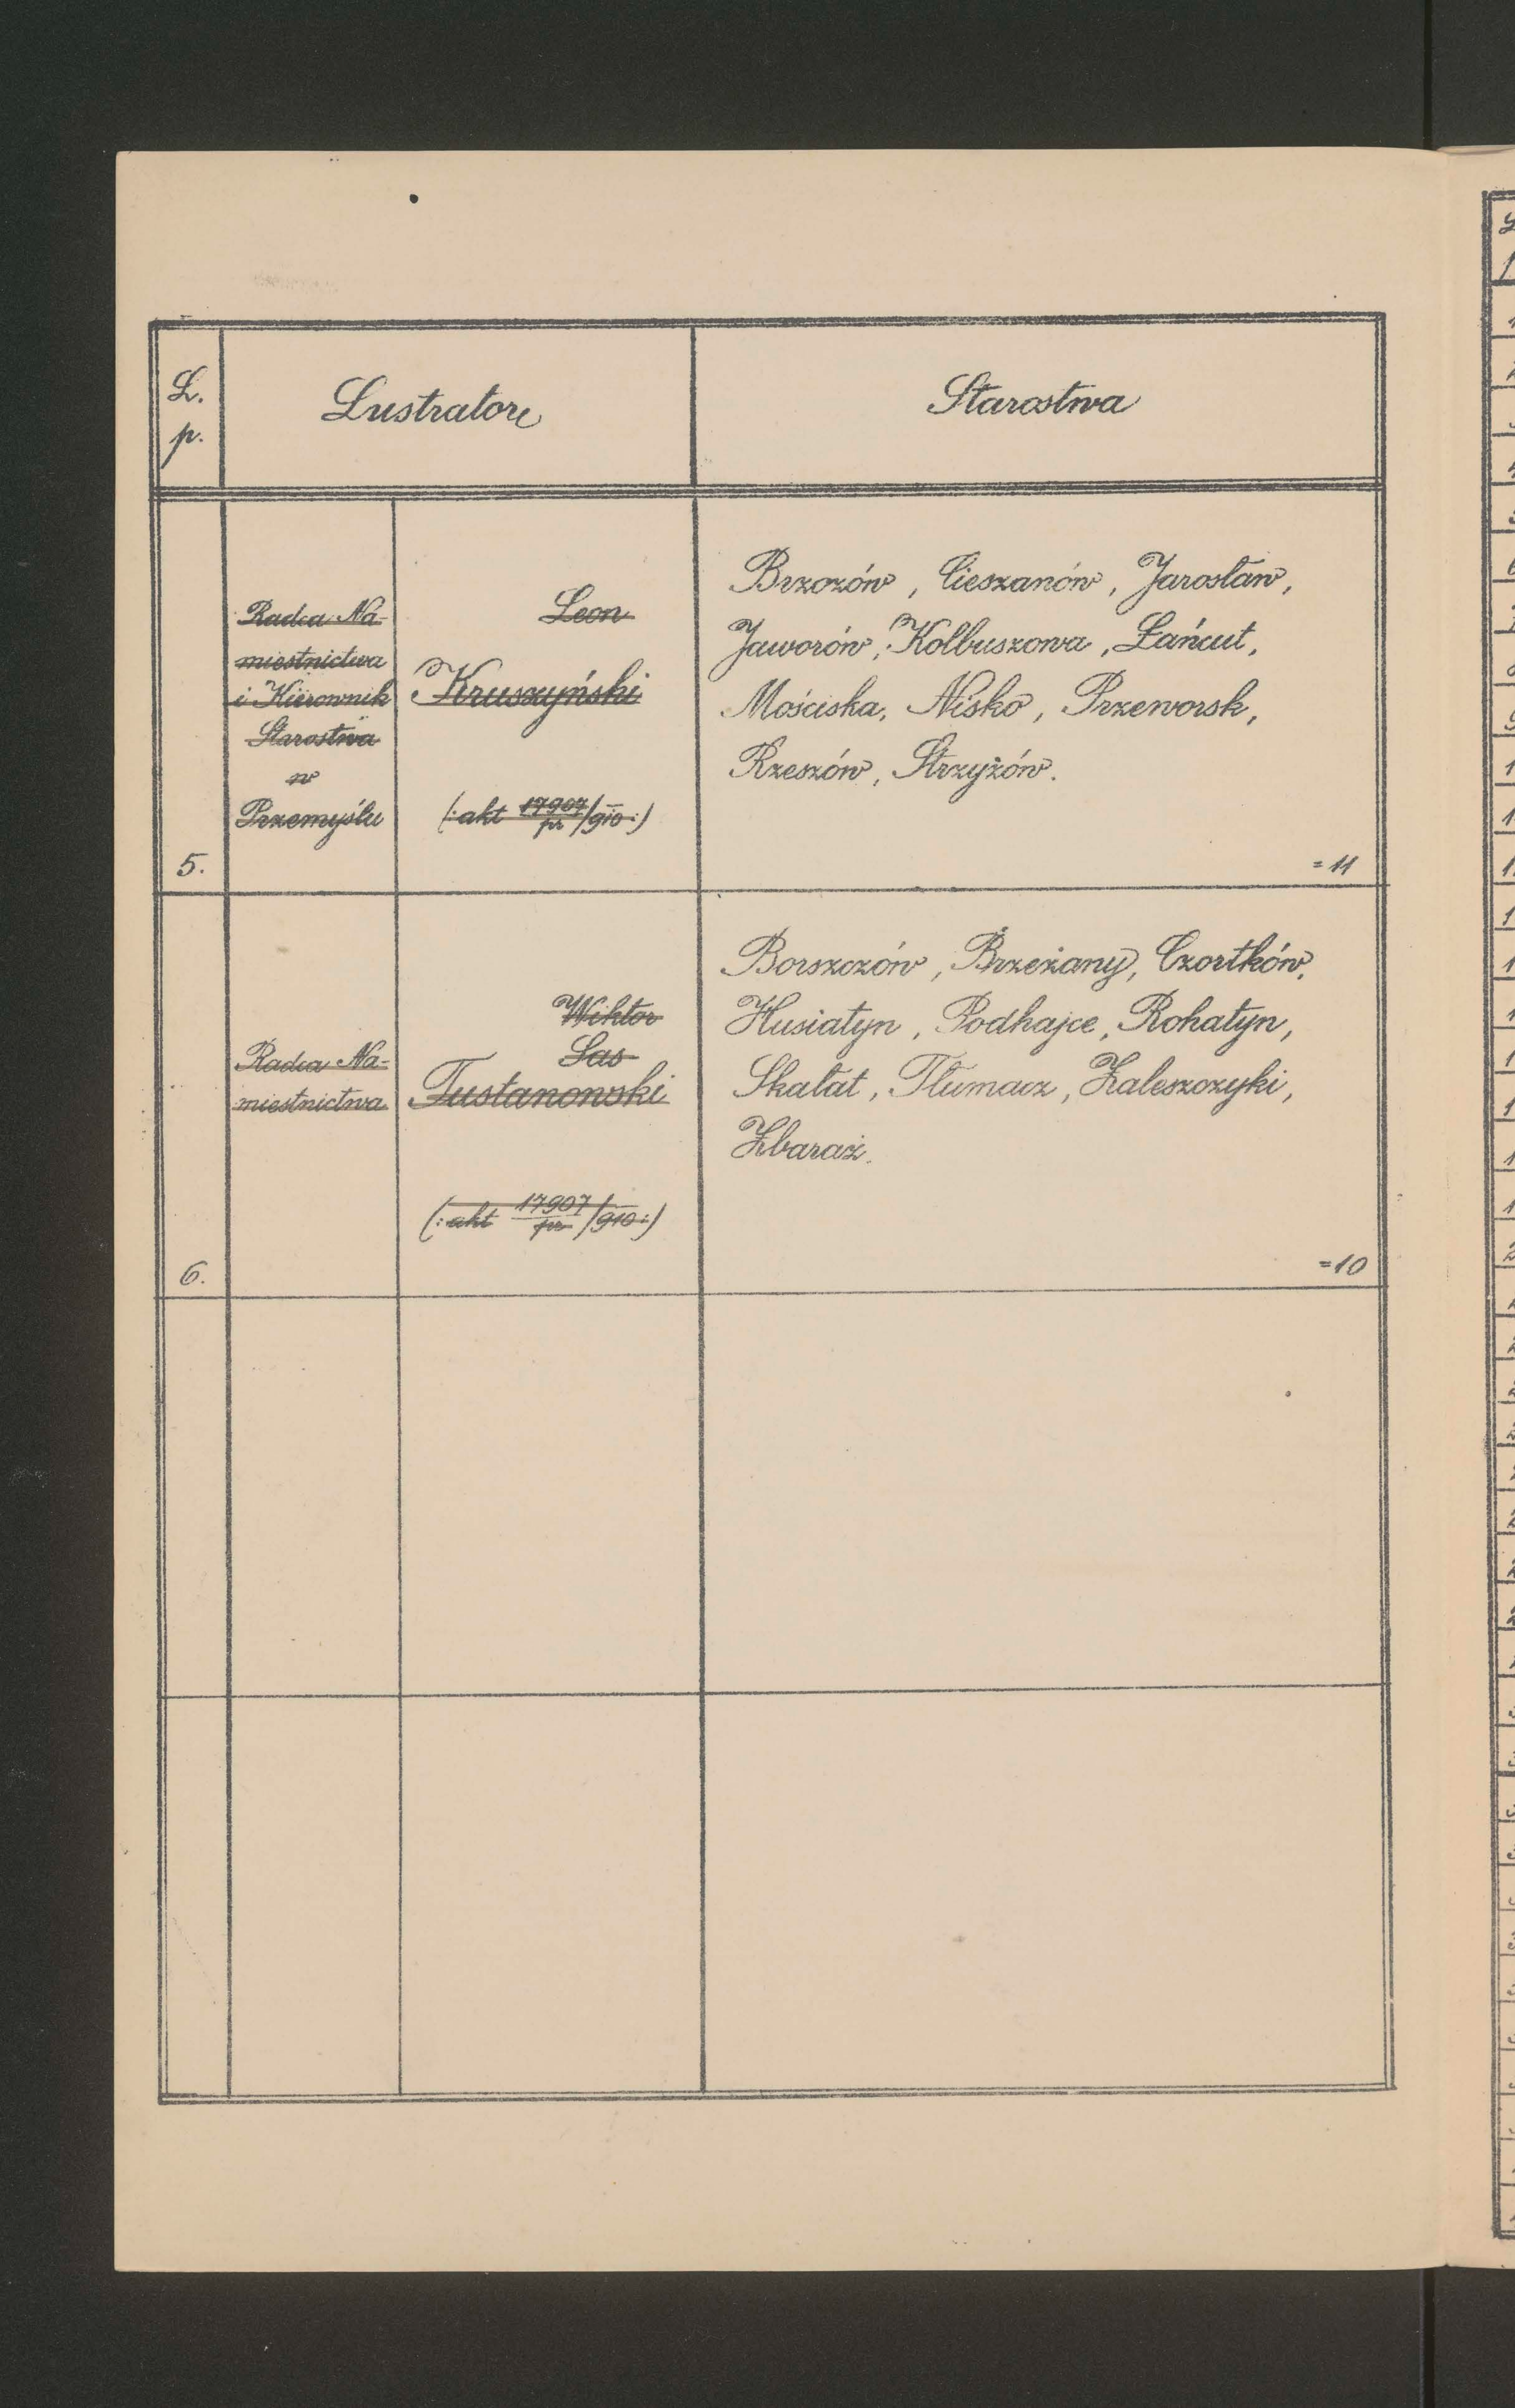 L.
p.
Lustratorz
Starostwa
Radca Na-
miestnictwa
i Kierownik
Starostwa
w
Przemyślu
Leon
Kruszyński
(: akt 17907/pr /910 :)
Brzozów, Cieszanów, Jarosław,
Jaworów, Kolbuszowa, Łańcut,
Mościska, Nisko, Przeworsk,
Rzeszów, Strzyżów.
5.
=11
Radca Na-
miestnictwa
Wiktor
Sas
Tustanowski
(: akt 17907/pr /910 :)
Borszczów, Brzeżany, Czortków,
Husiatyn, Podhajce, Rohatyn,
Skałat, Tłumacz, Zaleszczyki,
Zbaraż.
6.
=10